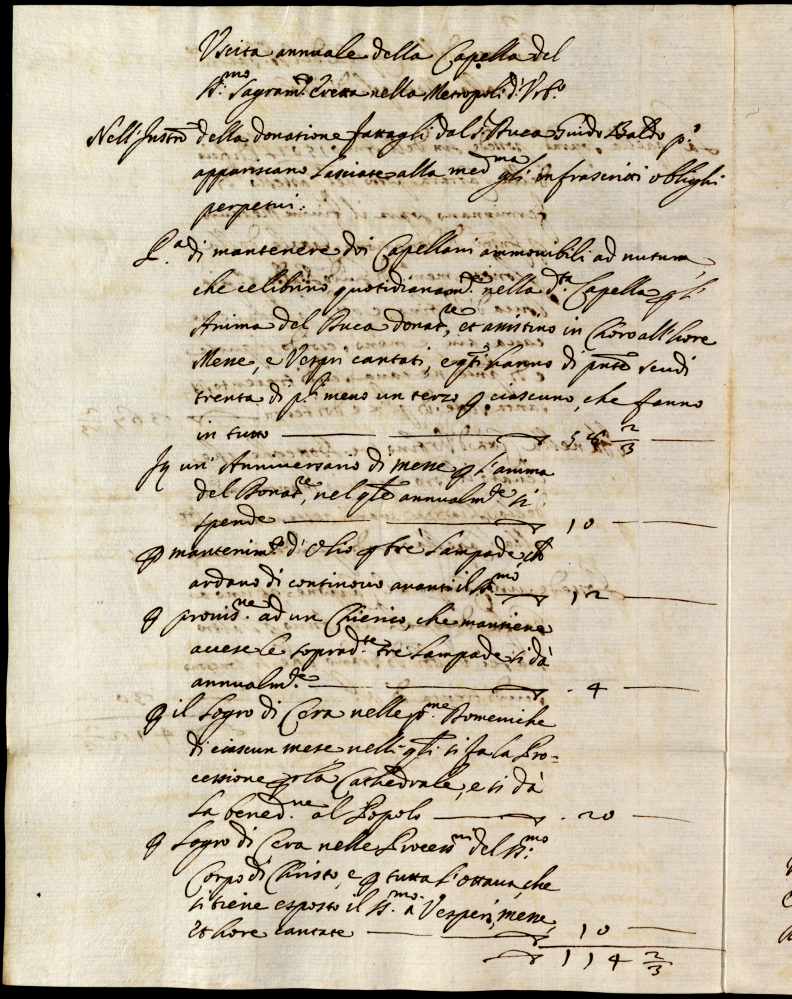 Uscita annuale della Capella del
S.mo Sagram.to Eretta nella Metropoli d'Urb.o
Nell'Instro della donatione fattagli dal s. Duca Guido Baldo p.o
appariscano Lasciate alla med.ma gli infrascritti oblighi
perpetui:
P.a di mantenere doi Capellani ammovibili ad nutum
che celibrino quotidianam.te nella d.ta Capella p l'
Anima del Duca Donat.re, et assistino in Choro all'hore
Messe, e Vespri cantati, e q.ti hanno di pnte scudi
trenta di p.li meno un terzo p ciascuno, che fanno
in tutto 58 2/3
In un' Anniversario di messe p l'anima
del Donat.re, nel qle annualm.te si
spende 10
p mantenim.to d'Olio p tre Lampade ch
ardano di continovo avanti il S.mo 12
p provis.ne ad un Chierico, che mantiene
accese le soprad.te tre Lampade si dà
annualm.te 4
p il Logro di Cera nelle p.me Domeniche
di ciascun mese nelli qli si fa la Pro-
cessione p la Cathedrale, e si dà
La bened.ne al Popolo 20
p Logro di Cera nelle Process.ni del S.mo
Corpo di Christo, e p tutta l'ottava, che
si tiene esposto il S.mo a Vesperi, messe,
et hore cantate 10
114 2/3